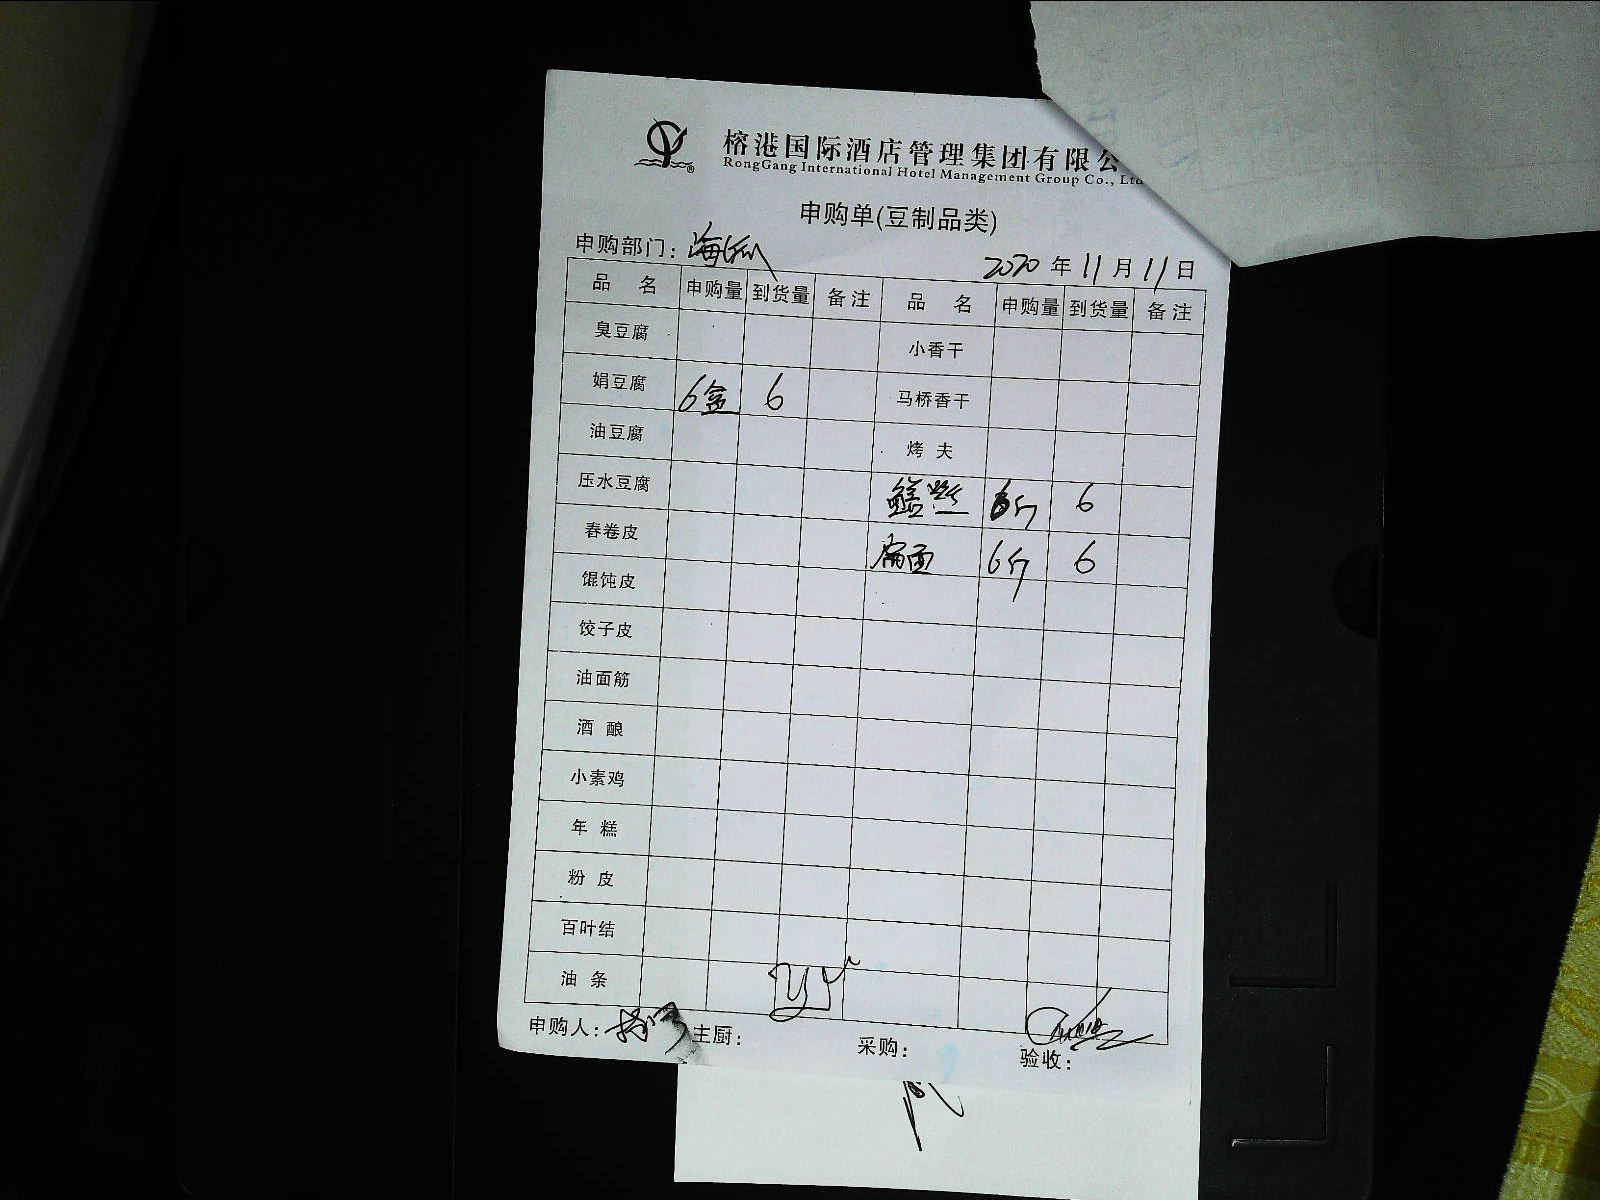 榕港国际酒店管理集团有限公
RongGang International Hotel Management Group Co., Ltd
申购单(豆制品类)
申购部门：
2020 年 11 月 11 日
品 名 申购量 到货量 备注 品 名 申购量 到货量 备注
臭豆腐 小香干
娟豆腐 6盒 6 马桥香干
油豆腐 烤 夫
压水豆腐 鳝丝 6斤 6
春卷皮 扁面 6斤 6
馄饨皮
饺子皮
油面筋
酒 酿
小素鸡
年 糕
粉 皮
百叶结
油 条
申购人： 主厨： 采购： 验收：